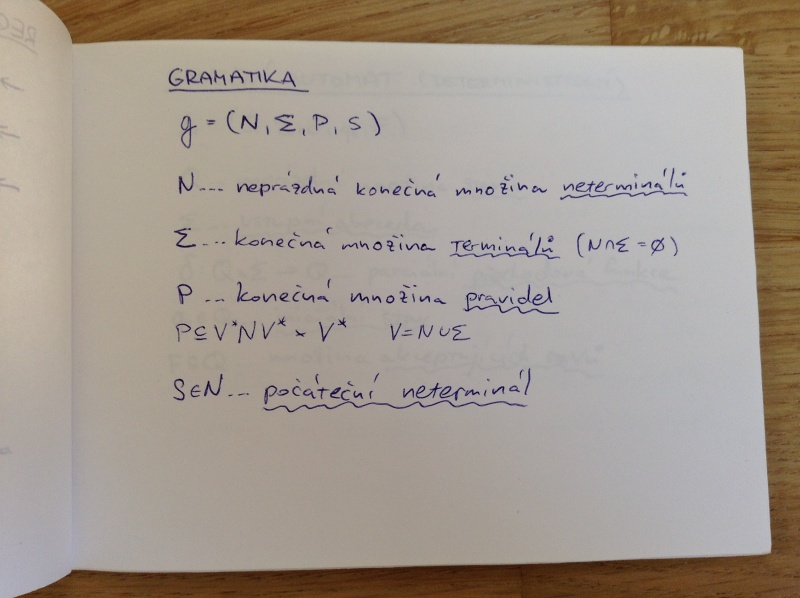 GRAMATIKA
g = (N, Σ, P, S)
N... neprázdná konečná množina neterminálů
Σ... konečná množina terminálů (N∩Σ=∅)
P ... konečná množina pravidel
P⊆V*NV* × V* V=N∪Σ
S∈N... počáteční neterminál